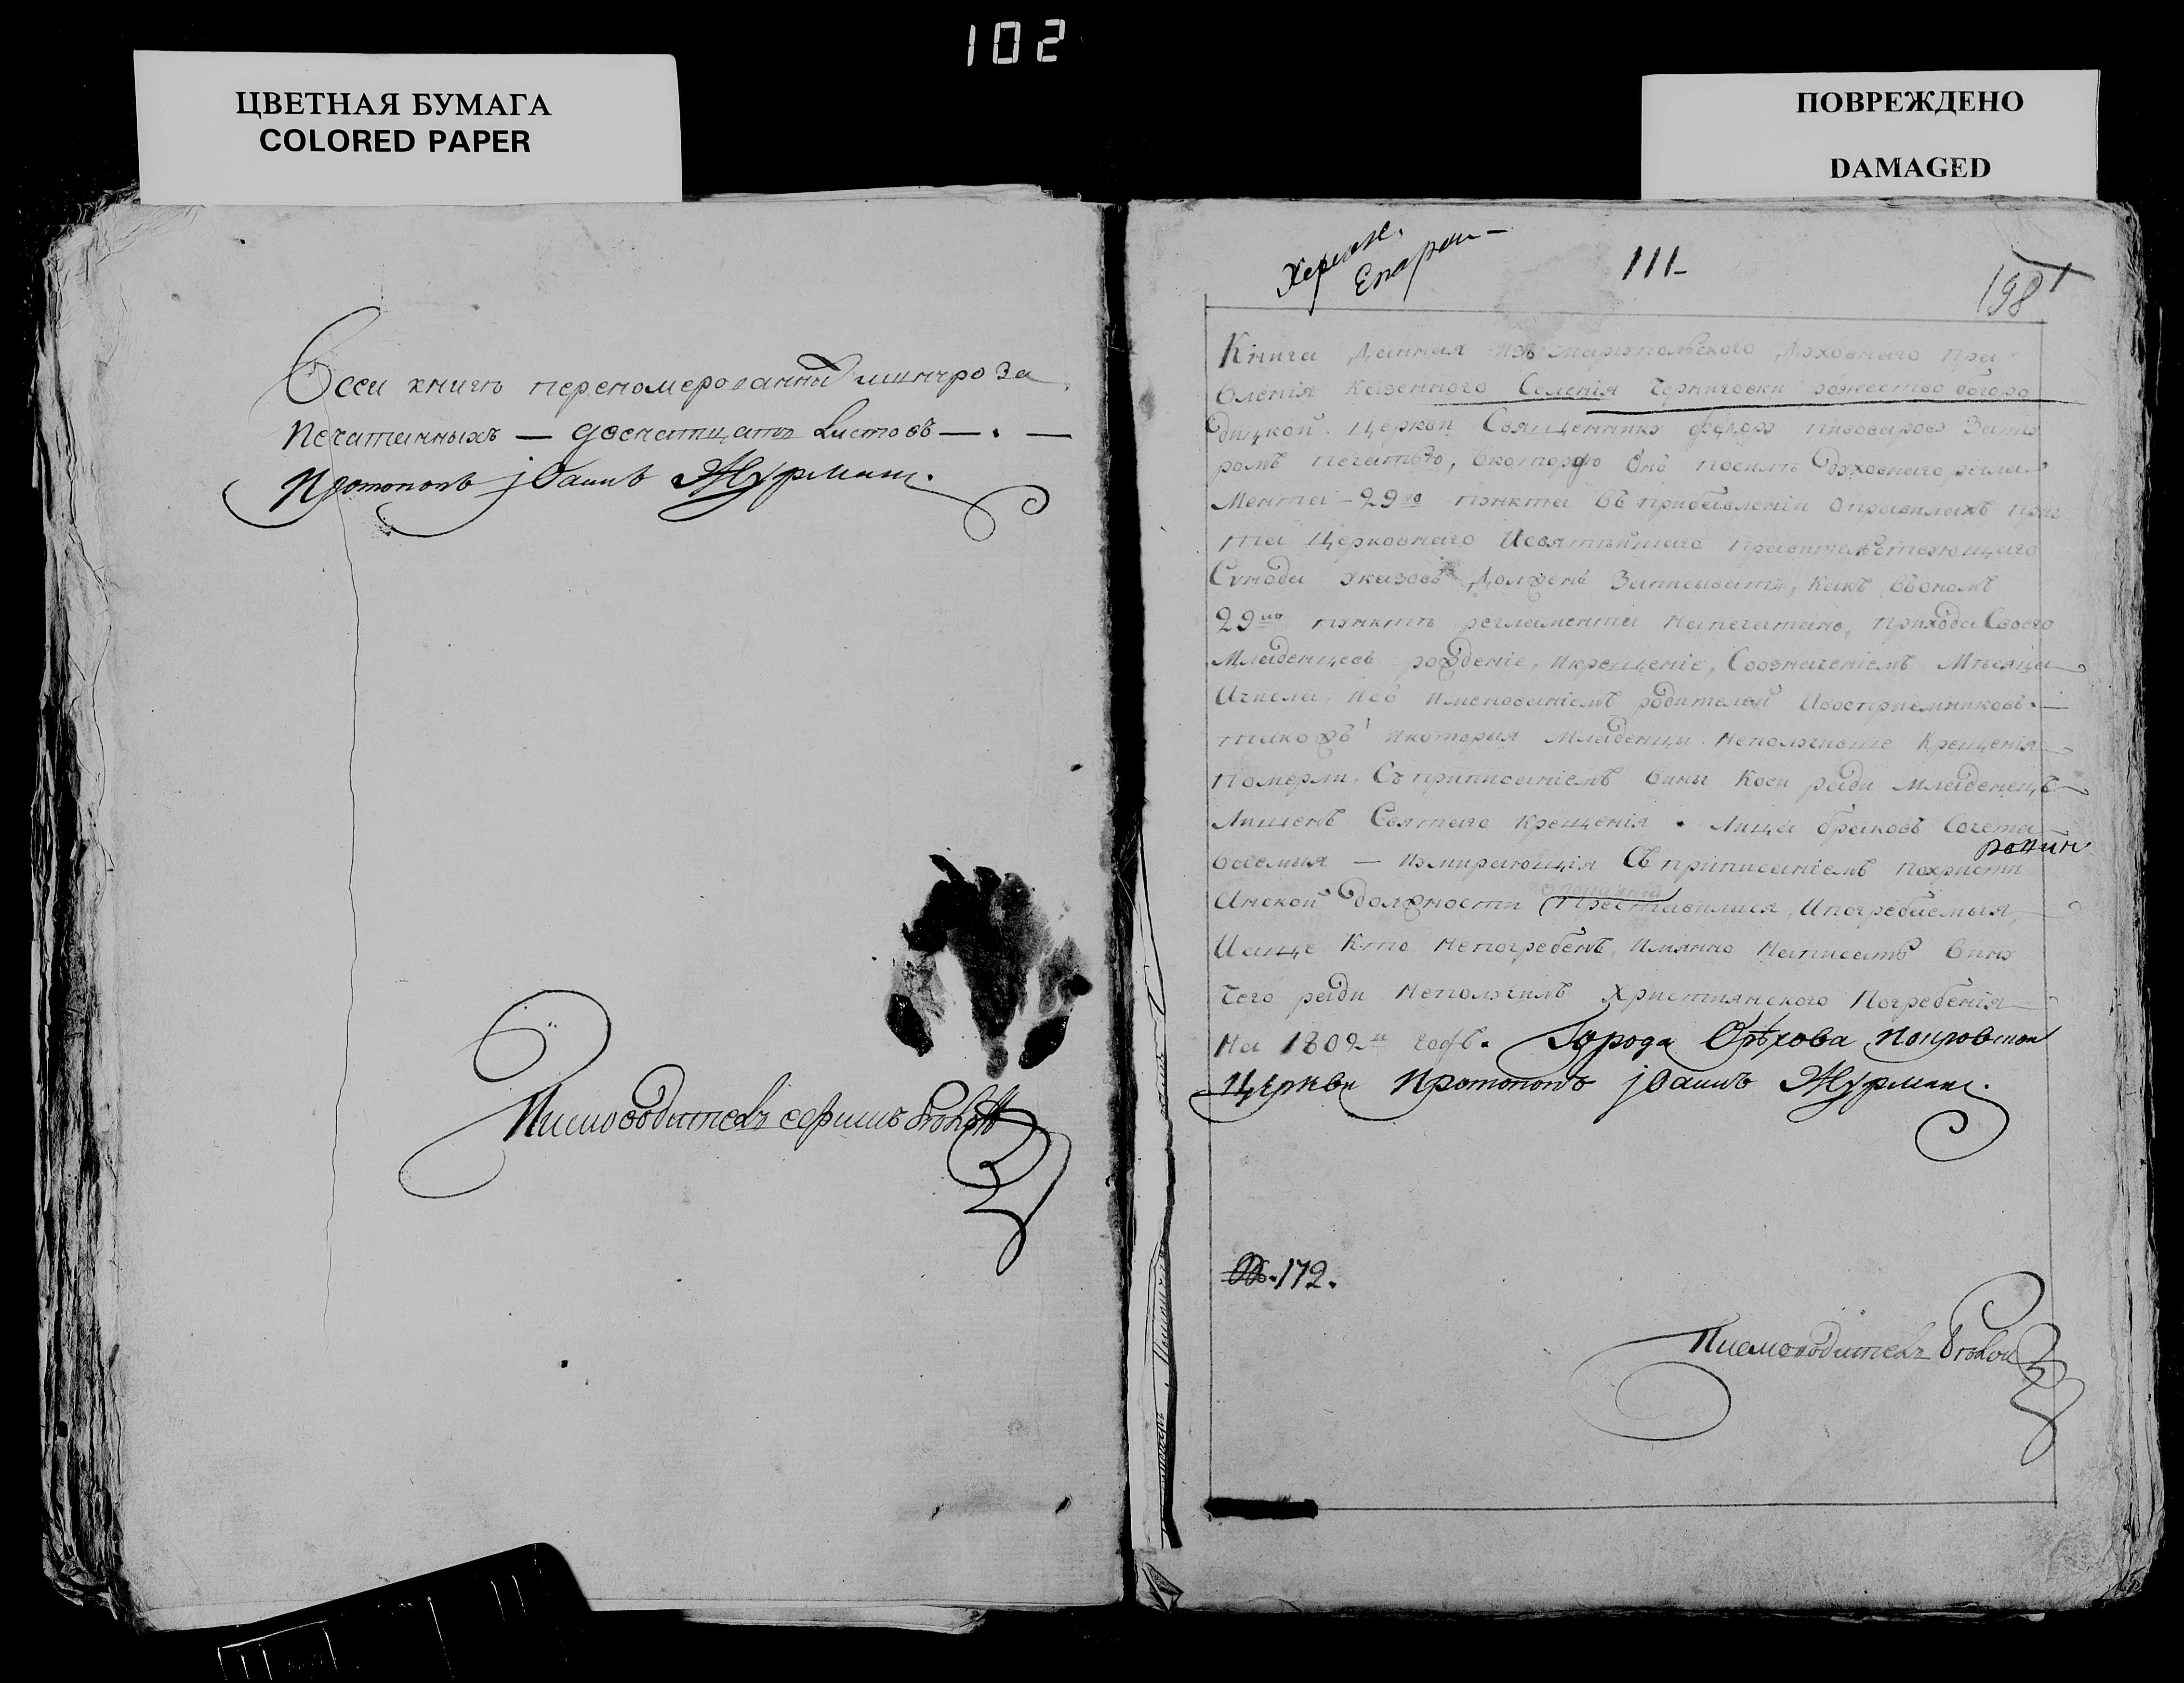 102
ЦВЕТНАЯ БУМАГА
COLORED PAPER
ПОВРЕЖДЕНО
DAMAGED
Всеи книгѣ перепомерованни
Печатанныхъ — двенатцать Листовъ — . —
Протопопъ јоаннъ
Писмоводитель
Херсон.
Епархи —
111 —
198
Книга Данная изъ мариупольского Духовнаго пра
вленія казенного Селенія Черниговки рожество богоро
дицкой церкви Священнику федору пивоварову За шну
ромъ печатью, вкоторую Онъ посилѣ духовнаго регла
Мента — 29го пункта въ прибавленіи оправилахъ прич
та Церковнаго Исвятѣйшаго правительствующаго
Сѵнода указовъ Долженъ Записывать, какъ въономъ
29мъ пунктѣ регламента напечатано, прихода Своего
Младенцевъ рожденіе, икрещеніе, Соозначеніемъ Мѣсяца
Ичисла, изъ именованіемъ родителей Ивоспріемниковъ. —
такожъ икоторыя младенцы неполучивше крещенія
Померли, Съ приписаніемъ вины коея ради младенецъ
Лишенъ Святаго крещенія . лица бракомъ Сочета
ваемыя — Изумирающія Съ приписаніемъ похристи
Анской должности Преставилися, Ипогребаемыя,
Иаще Кто непогребенъ, Имянно написать вину
Чего ради неполучилъ христіянского Погребенія
На 1802й годъ. Города Орѣхова Покровской
Церкви Протопопъ јоаннъ
№. 172.
Писмоводитель